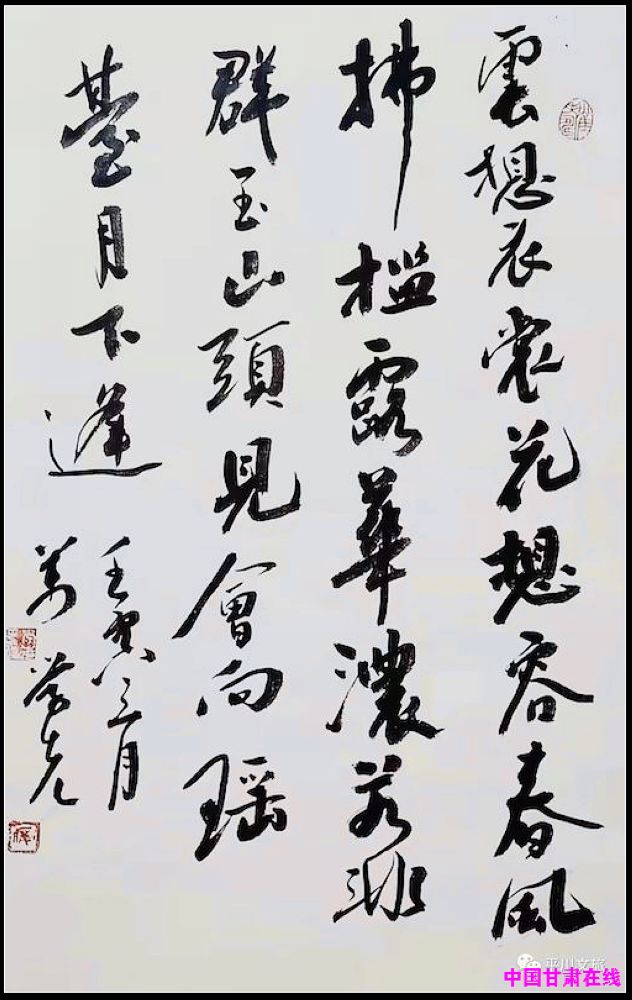 雲想衣裳花想容春風
拂槛露華濃若非
群玉山頭見會向瑶
臺月下逢
壬寅三月
平川文旅
中国甘肃在线